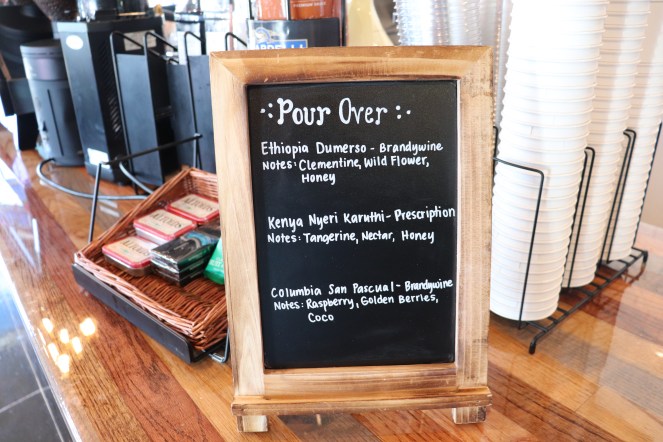 Pour Over
Ethiopia Dumerso - Brandywine
Notes: Clementine, Wild Flower,
Honey
Kenya Nyeri Karuthi - Prescription
Notes: Tangerine, Nectar, Honey
Columbia San Pascual - Brandywine
Notes: Raspberry, Golden Berries,
Coco